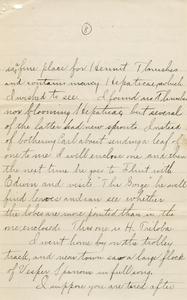 8
is a fine place for Hermit Thrushes
and contains many Hepaticas, which
I wished to see. I found no Thrushes
nor blooming Hepaticas but several
of the latter had new sprouts. Instead
of bothering Earl about sending a leaf of
one to me I will enclose one and then
the next time he goes to hunt with
and visits The Gorge he will
find leaves and can see whether
the lobes are more pointed than in the
one enclosed. This one is H. Triloba
I went home by the trolley
track, and near town saw a large flock
of Vesper Sparrows in full song.
I suppose you are tired after